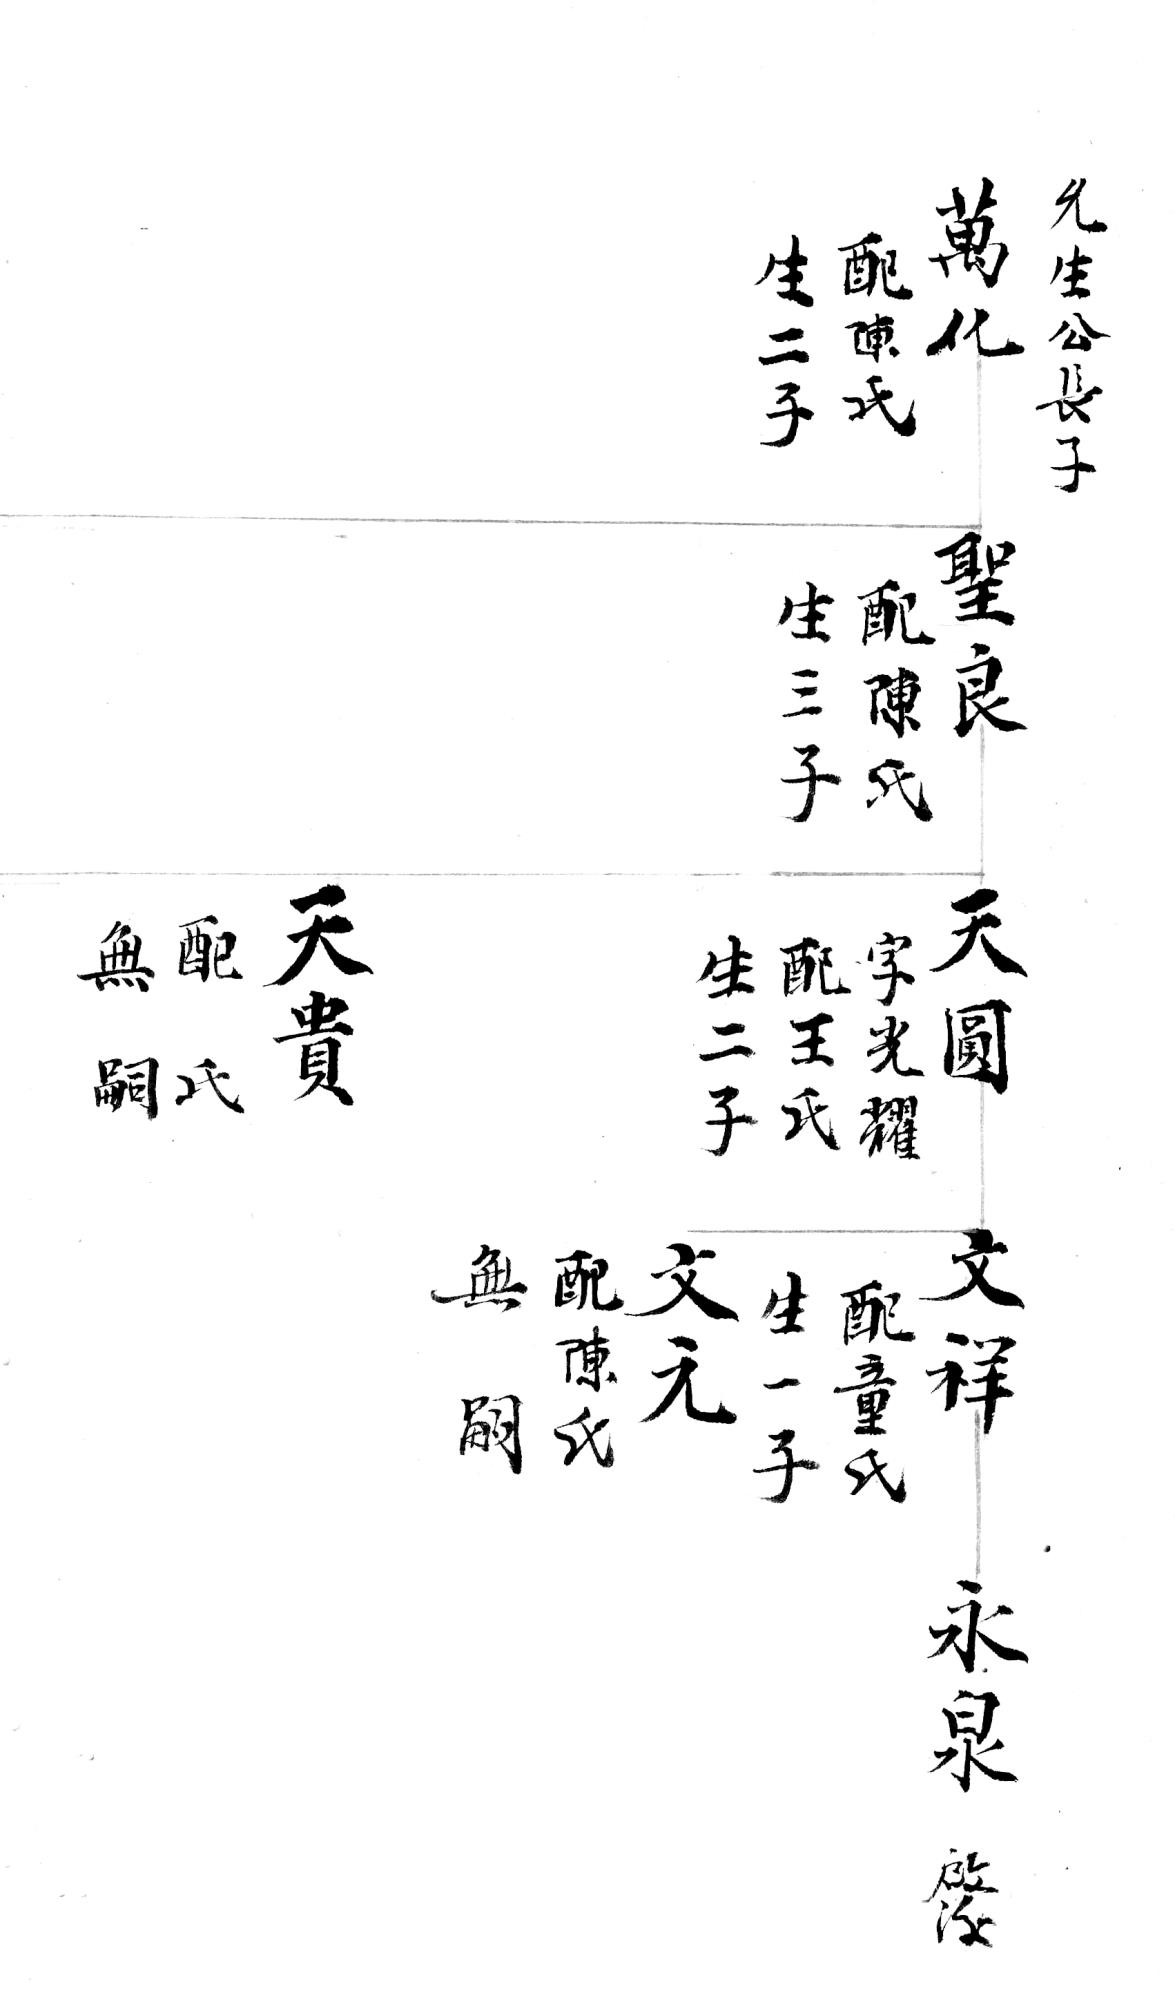 允生公長子
萬化
配陳氏
生二子
聖良
配陳氏
生三子
天圓
字光耀
配王氏
生二子
天貴
配氏
無嗣
文祥
配童氏
生一子
文元
配陳氏
無嗣
永泉
啟後